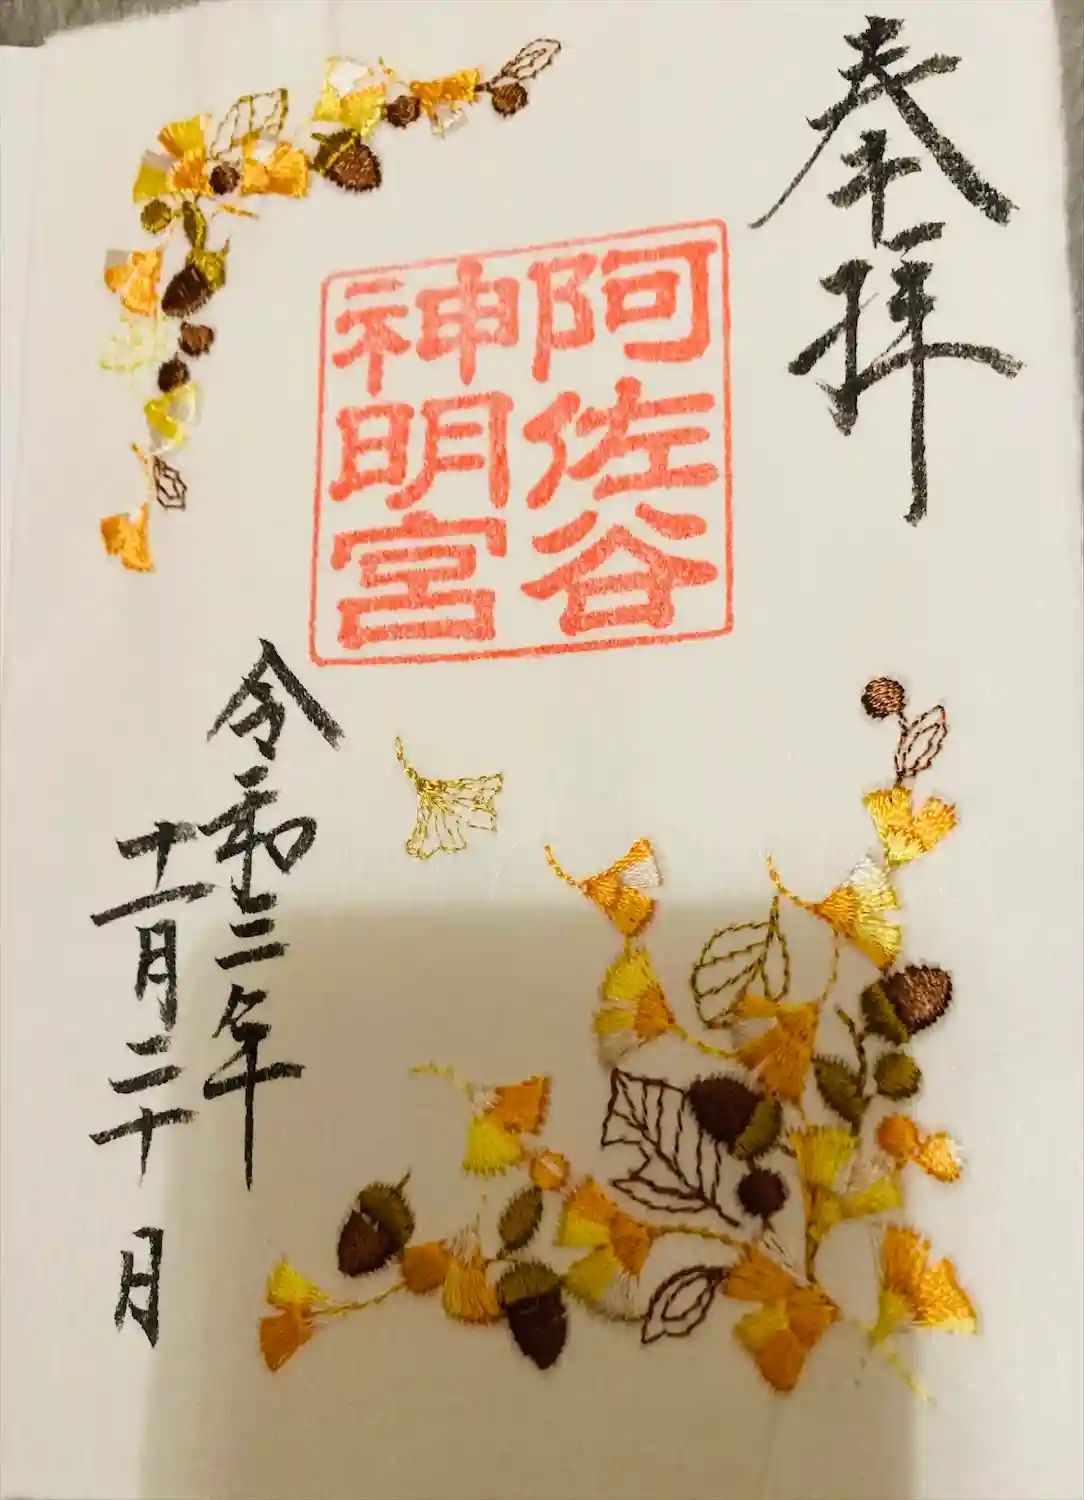 奉拝
阿佐谷
神明宮
令和三年
十一月二十日